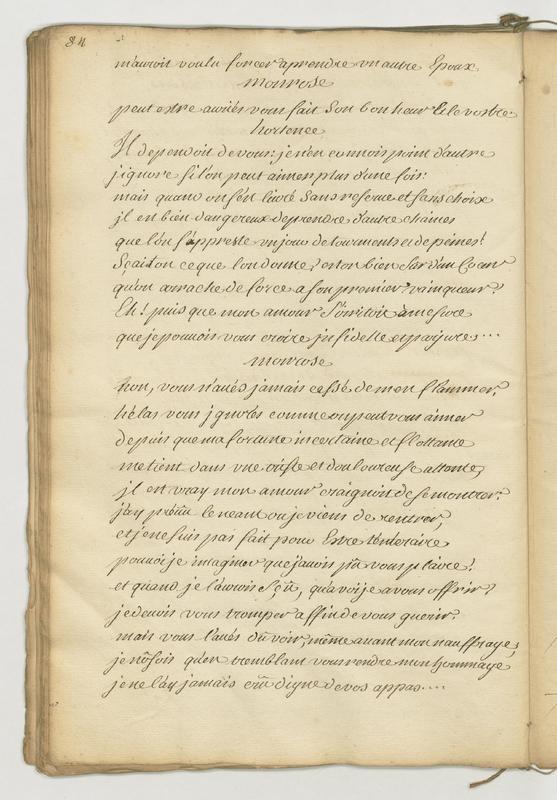 84
m'auroit voulu forcer aprendre un autre Epoux
monrose
peut estre auriés vous fait son bonheur & le vostre
hortence
Il dependoit de vous: je n'en connois point d'autre
j'ignore si l'on peut aimer plus d'une fois:
mais quand on s'en livré sans reserue et sans choix
jl est bien dangereux de prendre d'autre chaines
que l'on s'appreste un jour de tourments et de peines!
Sçait on ce que l'on donne? est on bien sar d'un Coeur
qu'on arrache de force a son premier vainqueur?
Eh! puis que mon amour s'irritoit à mesure
que je pouvois vous croire jnfidelle et parjure...
monrose
non, vous n'aués jamais cessé de m'en flammer,
hélas vous jgnorés comme on peut vous aimer
depuis que ma fortune incertaine et flottante
me tient dans une triste et douloureuse attente,
jl est vray mon amour craignoit de se montrer.
j'ay préuu le neant ou je viens de rentrer,
et je ne suis pas fait pour Estre temeraire
pouuoi je imaginer que j'auois pû vous plaire!
et quand je l'aurois sçû, qu'avoi je a vous offrir?
je deuois vous tromper affin de vous guerir.
mais vous l'aués dû voir, même auant mon nauffrage,
je n'osois qu'en tremblant vous rendre mon hommage
je ne l'ay jamais crû digne de vos appas....